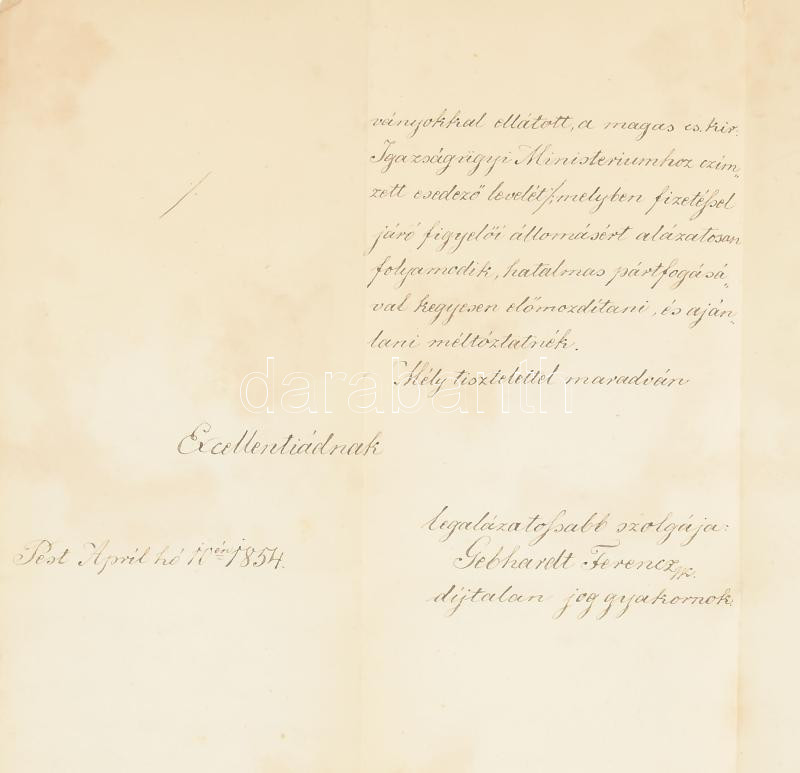 ványokkal ellátott, a magas cs. kir.
Igazságügyi Ministeriumhoz czim„
zett esedező levelét /: melyben fizetéssel
járó figyelői állomásért alázatosan
folyamodik, hatalmas pártfogásá„
val kegyesen előmozdítani, és aján„
lani méltóztatnék.
Mély tisztelettel maradván
darabanth
Excellentiádnak
legalázatossabb szolgája:
Pest April hó 1854.
Gebhardt Ferencz
díjtalan joggyakornok.